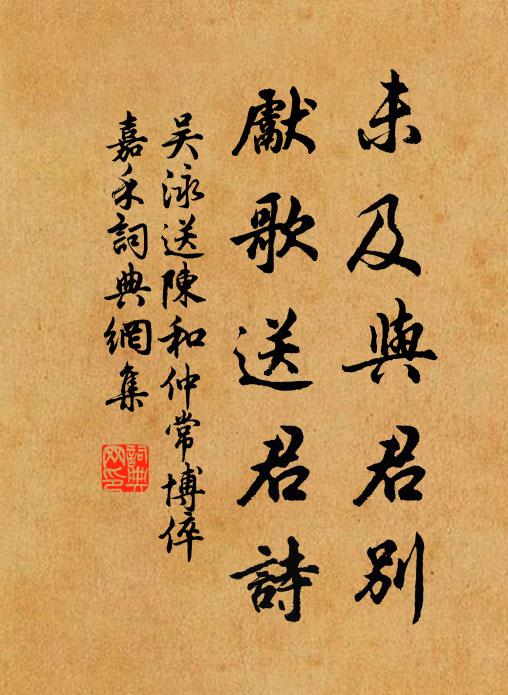 未及與君別
獻歌送君詩
吴泳送陳和仲常博倅
嘉禾詞典網集
詞典網印